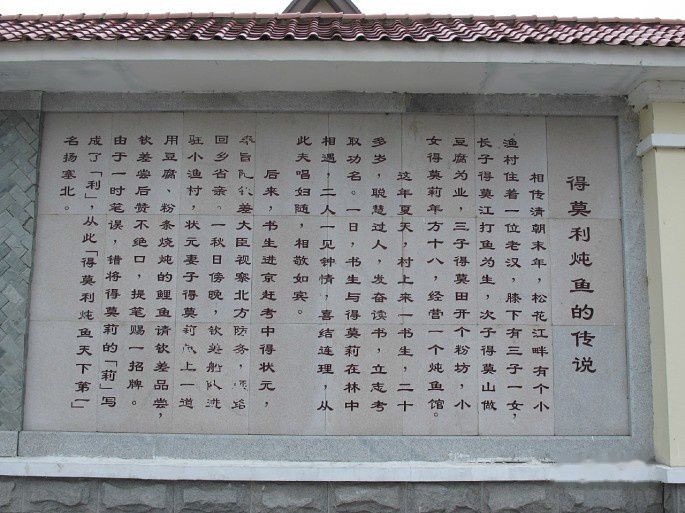 得莫利炖鱼的传说
相传清朝末年，松花江畔有个小
渔村住着一位老汉，膝下有三子一女，
长子得莫江打鱼为生，次子得莫山做
豆腐为业，三子得莫田开个粉坊，小
女得莫莉年方十八，经营一个炖鱼馆。
这年夏天，村上来一书生，二十
多岁，聪慧过人，发奋读书，立志考
取功名。一日，书生与得莫莉在林中
相遇，二人一见钟情，喜结连理，从
此夫唱妇随，相敬如宾。
后来，书生进京赶考中得状元，
差大臣视察北方防务，路
回乡省亲。一秋日傍晚，钦差船队进
驻小渔村，状元妻子得莫莉上一道
用豆腐、粉条烧炖的鲤鱼请钦差品尝，
钦差尝后赞不绝口，提笔赐一招牌。
由于一时笔误，错将得莫莉的「莉」写
成了「利」，从此「得莫利炖鱼天下第一」
名扬塞北。